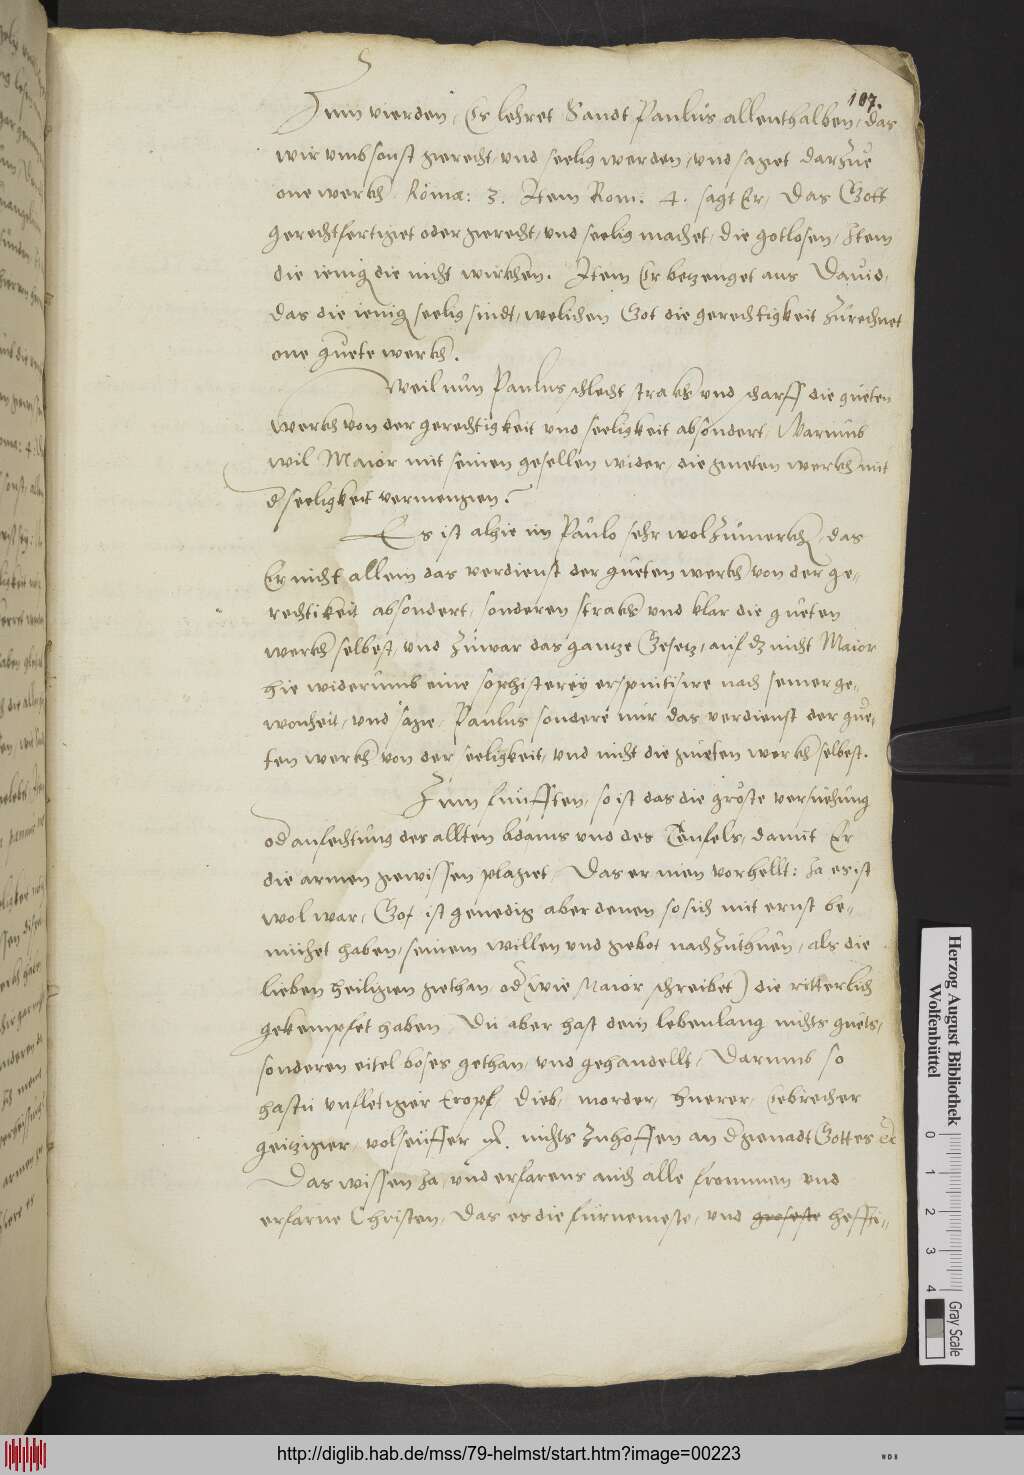 107.
Zum vierden, Er lehret Sandt Paulus allenthalben, das
wir umb sonst gerecht und seelig werden, und saget darzue
one werckh. Romæ: 3. Item Rom: 4. sagt Er, Das Gott
gerechtfertiget oder gerecht, und seelig machet, die gotlosen, Item
die ienig die nicht wirckhen. Item Er betzenget aus David,
das die ienig seelig sindt, welichen Got die gerechtigkeit zurechnet
one guete werckh.
Weil nun Paulus schlecht strackhs und scharff die gueten
Werckh von der gerechtigkeit und seeligkeit absondert, Warumb
wil Maior mit seinen gesellen wider, die gueten werckh mit
d seeligkeit vermengen?
Es ist alhie im Paulo sehr wol zumerckhen, das
Er nicht allein das verdienst der gueten werckh von der ge-
rechtikeit absondert, sonderen strackhs und klar die gueten
werckh selbest, und zuwar das gantze Gesetz, auf dz nicht Maior
hie widerumb eine sophisterey erspintisire nach seiner ge-
wonheit, und sage, Paulus sondere nur das verdienst der gue-
ten werckh von der seeligkeit, und nicht die gueten werckh selbest.
Zum fünfften, so ist das die gröste versuchung
od anfechtung des allten Adams und des Teufels, damit Er
die armen gewissen plaget, Das er inen vorhellt: Ja es ist
wol war, Got ist genedig aber denen so sich mit ernst be-
mühet haben, seinem willen und gebot nachzuthuen, als die
lieben heiligen gethan, od (wie Maior schreibet) die ritterlich
gekempfet haben, Du aber hast dein lebenlang nichts guets,
sonderen eitel boses gethan, und gehandellt, Darumb so
hastu unfletiger tropf, dieb, morder, huerer, Eebrecher
geitziger, volseüffer etc. nichts zuhoffen an d genadt Gottes etc
Das wissen Ja, und erfarens auch alle frommen und
erfarne Christen, Das es die fürnemeste, und groseste hefftig-
Herzog August Bibliothek
Wolfenbüttel
0 1 2 3 4
Gray Scale
http://diglib.hab.de/mss/79-helmst/start.htm?image=00223